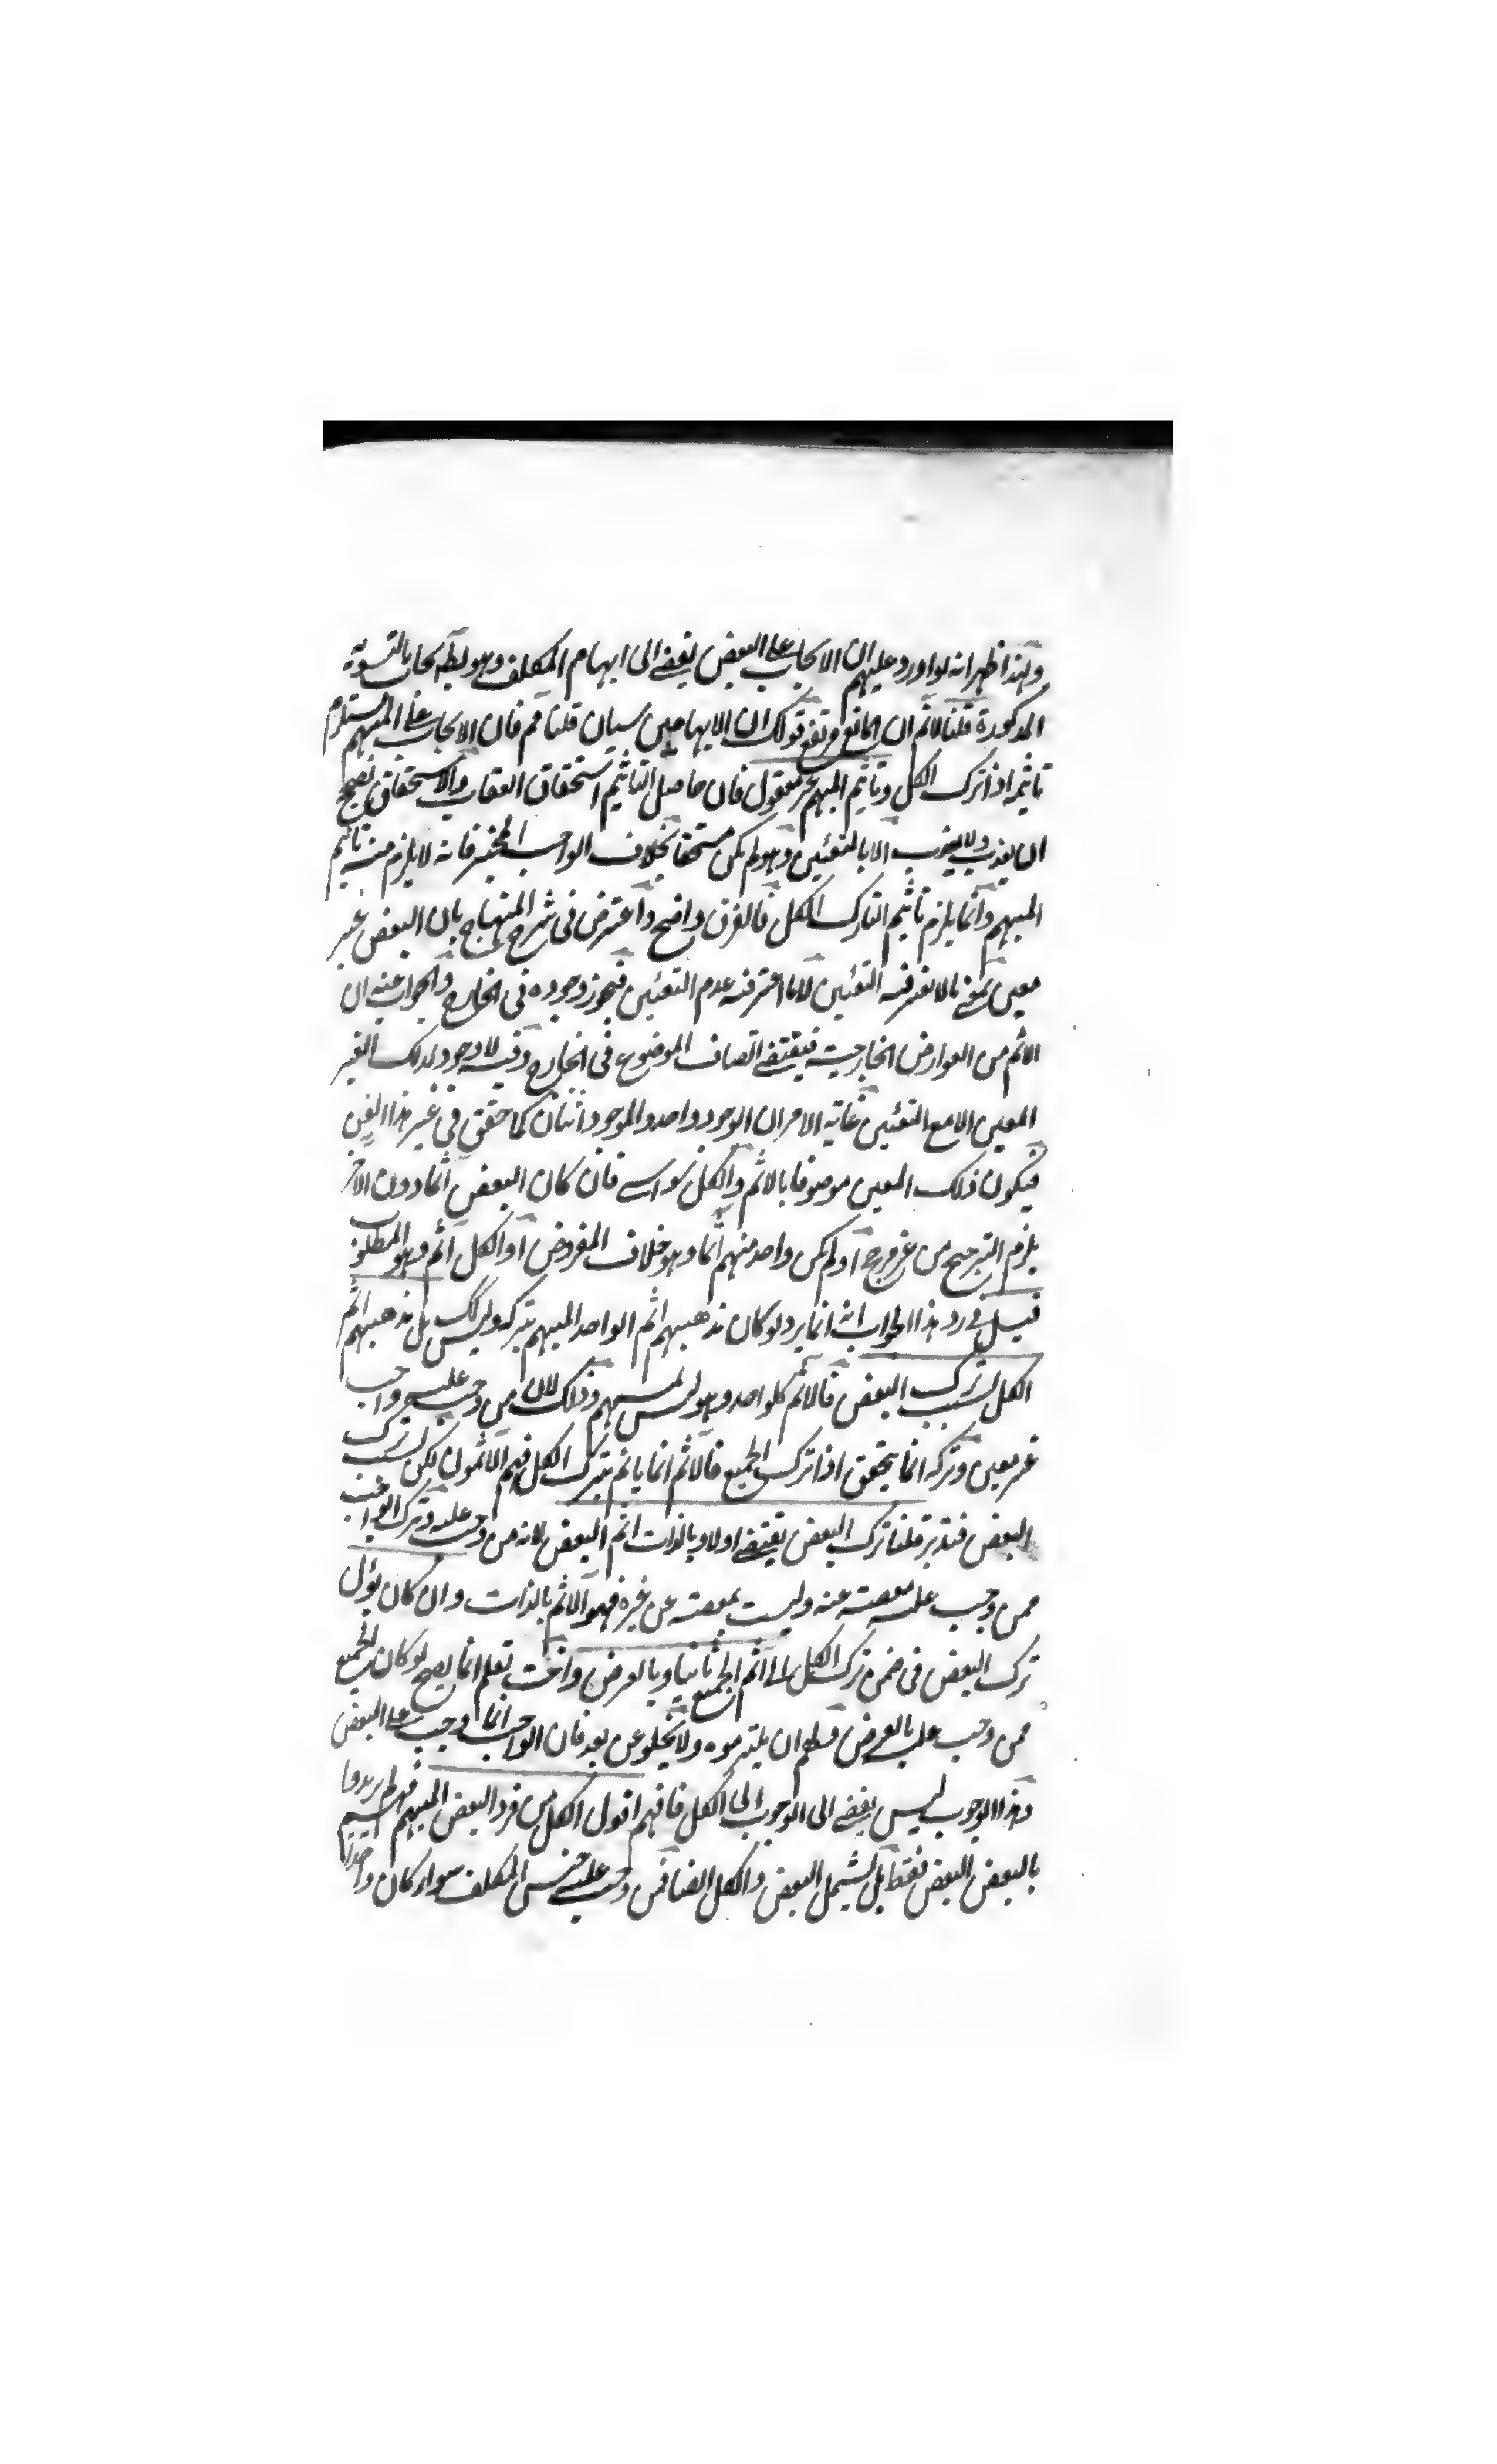 وبهذا ظهر انه لو اورد عليهم ان الايجاب على البعض يفضي الى ابهام المكلف وهو بط يجاب بالتسوية
المذكورة قلنا لانم ان المانع مرتفع قولك ان الابهامين سيان قلنا مم فان الايجاب على المبهم يستلزم
تاثيمه اذا ترك الكل وتاثيم المبهم غير معقول فان حاصل التاثيم استحقاق العقاب والاستحقاق تصحيح
ان يعذب ولا يعذب الا بالتعيين وهو لم يكن مستحقا بخلاف الواجب المخير فانه لا يلزم منه تاثيم
المبهم وانما يلزم تاثيم التارك الكل فالفرق واضح واعترض في شرح المنهاج بان البعض غير
معين بمعنى ما لا نعرفه التعيين لا ما اعترفنه عدم التعيين فيجوز وجوده في الخارج والجواب عنه ان
الاثم من العوارض الخارجية فيقتضي اتصاف الموضوع في الخارج وفيه لا وجود لذلك الغير
المعين الا مع التعيين غاية الامر ان الوجود واحد والموجود اثنان كما حقق في غير هذا الفن
فيكون ذلك المعين موصوفا بالاثم والكل سواسي فان كان البعض اثما دون الاخر
يلزم الترجيح من غير مرجح او لم يكن واحد منهم اثما وهو خلاف المفروض او الكل اثم وهو المطلوب
قيل في رد هذا الجواب انه انما يرد لو كان مذهبهم اثم الواحد المبهم بتركه وليس كك بل مذهبهم اثم
الكل بسبب ترك البعض فالاثم كل واحد وهو ليس بمبهم وذلك لان من وجب عليه واجب
غير معين وتركه انما يتحقق اذا ترك الجميع فالاثم انما ياثم بترك الكل فهم الاثمون لكن بسبب ترك
البعض فتدبر قلنا ترك البعض يقتضي اولا وبالذات اثم البعض لانه من وجب عليه وترك الواجب
ممن وجب عليه معصية عنه وليست بمعصية عن غيره فهو الاثم بالذات وان كان يؤل
ترك البعض في ضمن ترك الكل الى اثم الجميع ثانيا وبالعرض وانت تعلم انما يصح لو كان الجميع
ممن وجب عليه بالعرض ولهم ان يلتزموه ولا يخلو عن بعد فان الواجب انما وجب على البعض
وهذا الوجوب ليس يفضي الى الوجوب الى الكل فافهم اقول الكل من فرد البعض المبهم فهم لم يريدوا
بالبعض البعض فقط بل يشمل البعض والكل ايضا فمن وجب عليه جنس المكلف سواء كان واحدا